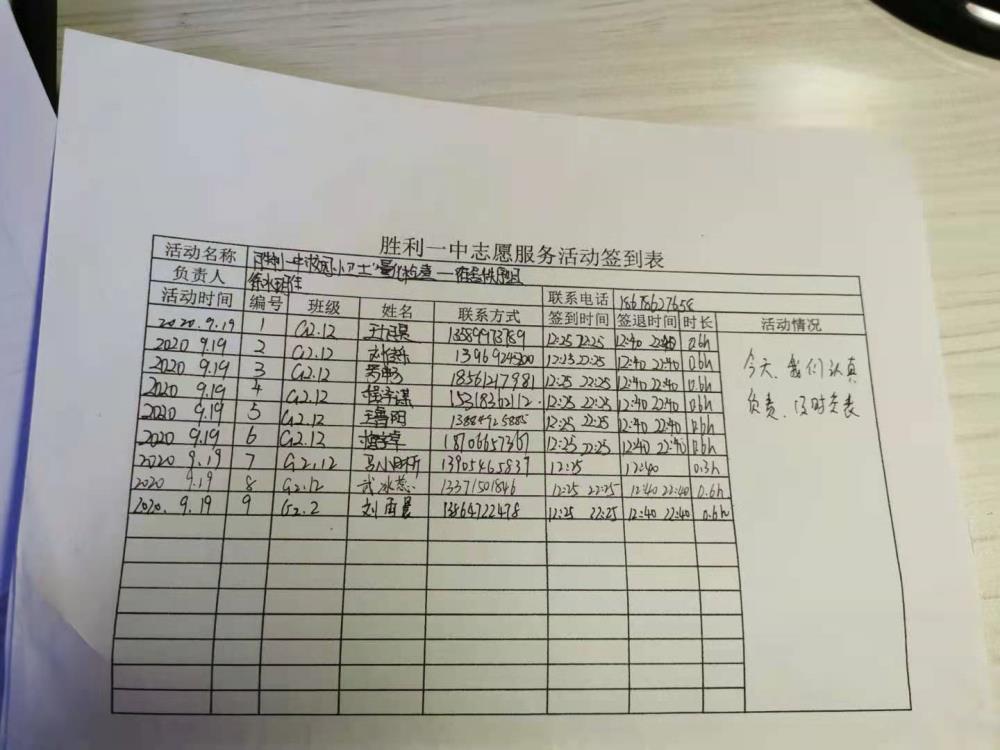 胜利一中志愿服务活动签到表
活动名称 胜利一中校园小卫士"量化检查—宿舍秩序组
负责人 联系电话 18678627658
活动时间 编号 班级 姓名 联系方式 签到时间 签退时间 时长 活动情况
2020.9.19 1 G2.12 13589973789 12:25 22:25 12:40 22:40 0.6h
2020 9.19 2 G2.12 12:25 22:25 12:40 22:40 0.6h
2020 9.19 3 G2.12 18561217981 12:25 22:25 12:40 22:40 0.6h
2020 9.19 4 G2.12 12:25 22:25 12:40 22:40 0.6h
2020 9.19 5 G2.12 13884925885 12:25 22:25 12:40 22:40 0.6h
2020 9.19 6 G2.12 18706657367 12:25 22:25 12:40 22:40 0.6h
2020 9.19 7 G2.12 13905465837 12:25 12:40 0.3h
2020 9.19 8 G2.12 武冰蕊 13371501846 12:25 22:25 12:40 22:40 0.6h
2020.9.19 9 G2.2 刘雨晨 13864722478 12:25 22:25 12:40 22:40 0.6h
今天、我们认真
负责、及时查表